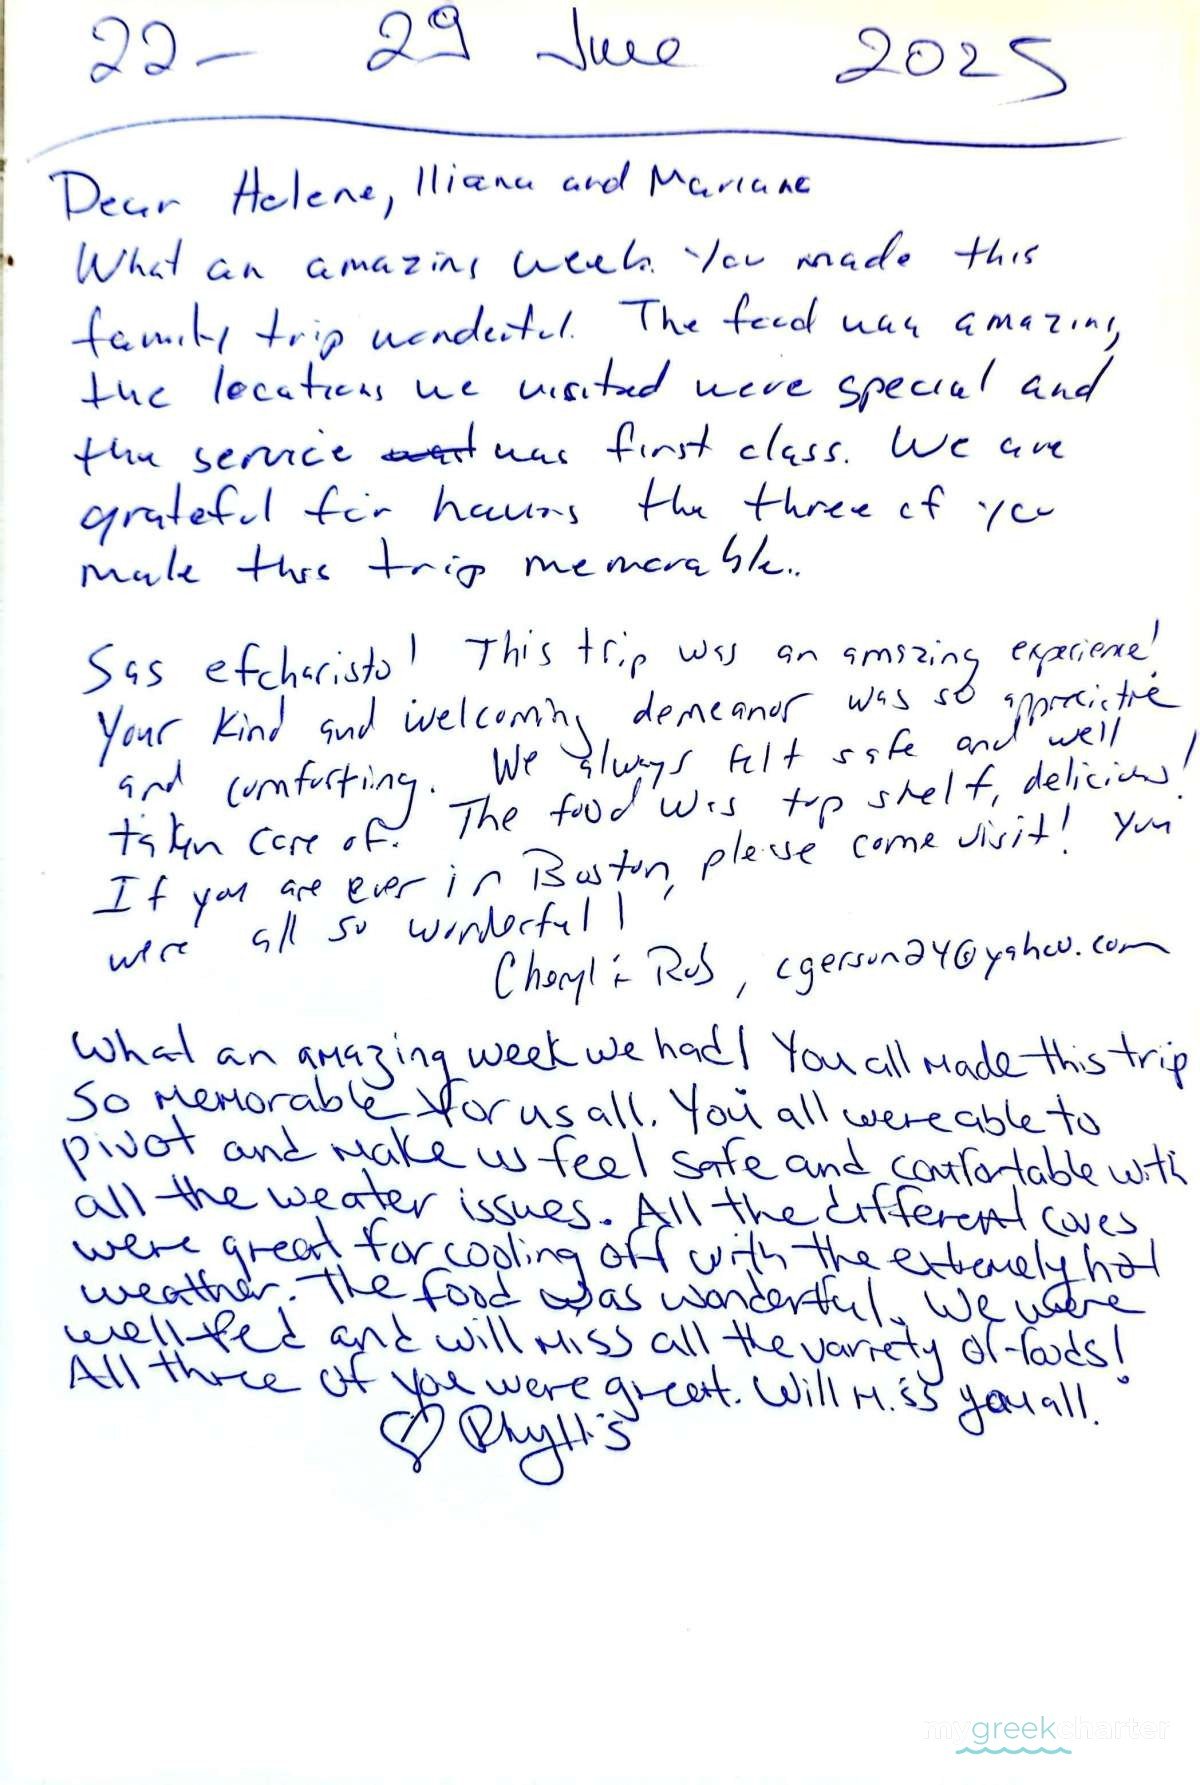 22 - 29 June 2025
Dear Helene, Iliana and Mariana
What an amazing week. You made this
family trip wonderful. The food was amazing,
the locations we visited were special and
the service was first class. We are
grateful for having the three of you
make this trip memorable..
Sas efcharisto! This trip was an amazing experience!
Your kind and welcoming demeanor was so appreciative
and comforting. We always felt safe and well
taken care of. The food was top shelf, delicious!
If you are ever in Boston, please come visit! You
were all so wonderful!
Cheryl & Rob, cgerson24@yahoo.com
What an amazing week we had! You all made this trip
so memorable for us all. You all were able to
pivot and make us feel safe and comfortable with
all the weater issues. All the different coves
were great for cooling off with the extremely hot
weather. The food was wonderful. We were
well fed and will miss all the variety of foods!
All three of you were great. Will miss you all.
♡ Phyllis
mygreekcharter